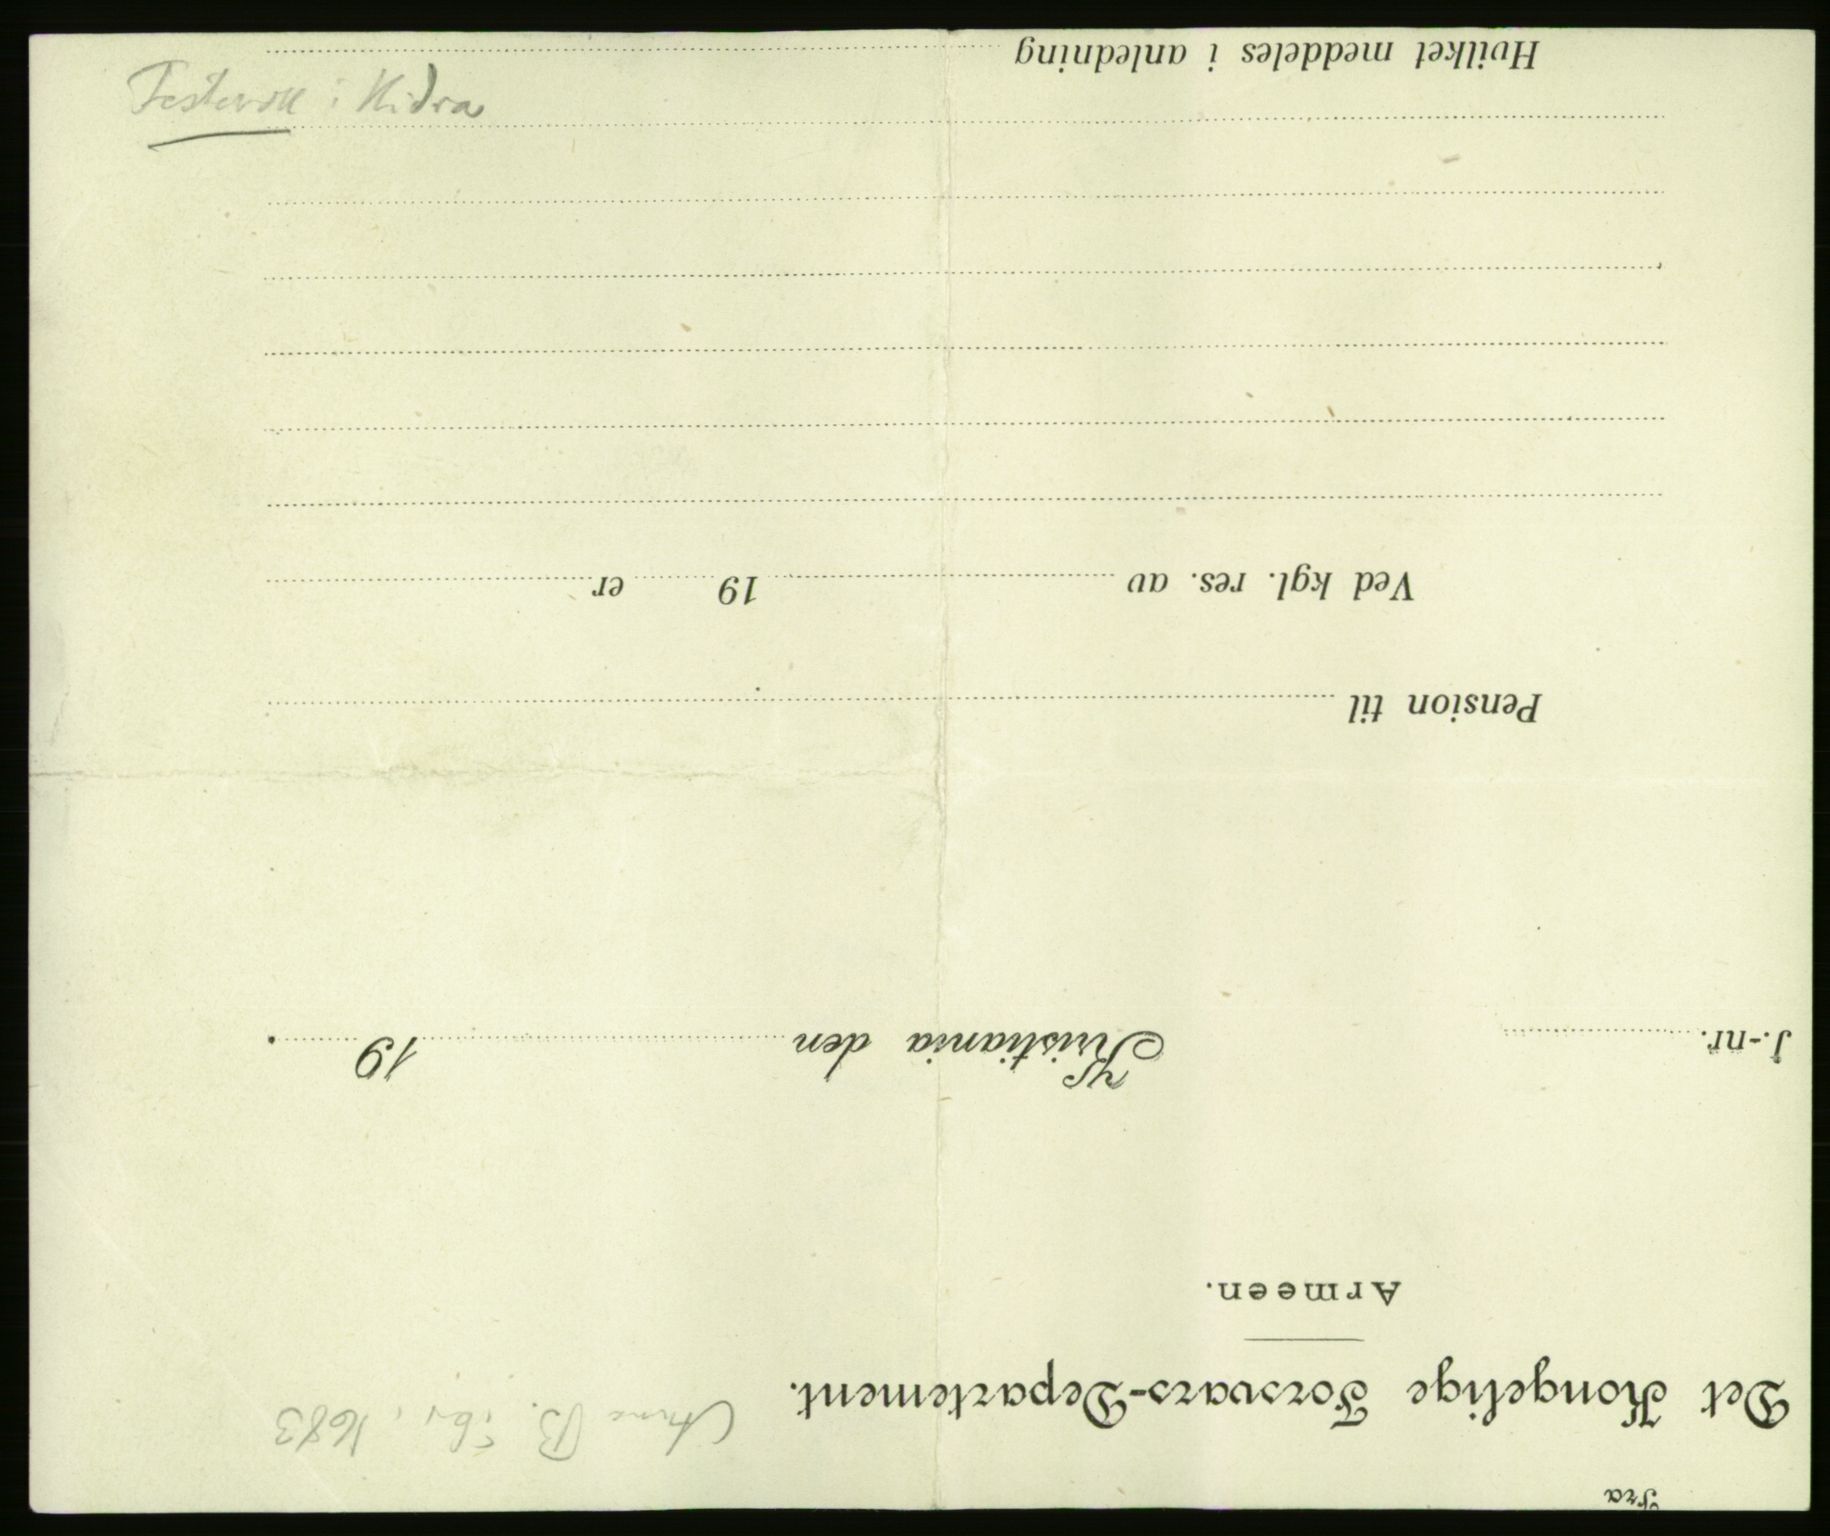 Fra
Det Kongelige Forsvars-Departement.
Armeen.
J.-nr.
Kristiania den 19 .
Pension til
Ved kgl. res. av 19 er
Hvilket meddeles i anledning
i Hidra
Anne B.